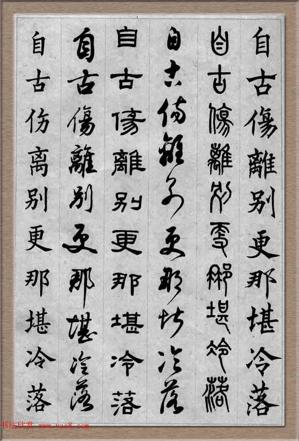 自古傷離別更那堪冷落
自古傷離別更那堪冷落
自古傷離別更那堪冷落
自古傷離別更那堪冷落
自古傷離別更那堪冷落
自古伤离别更那堪冷落